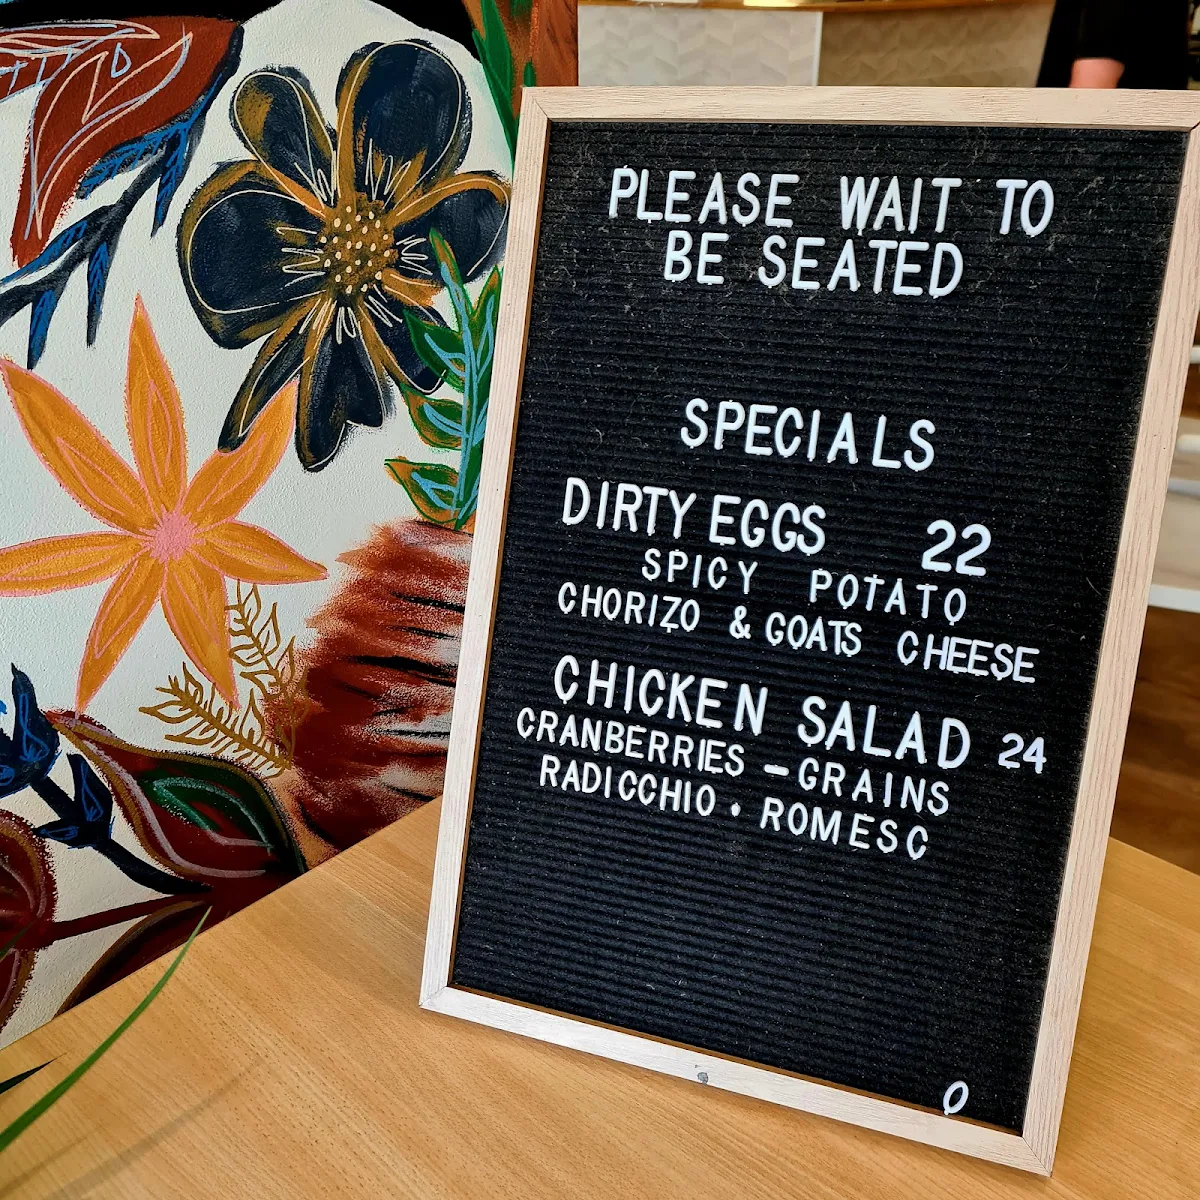 PLEASE WAIT TO
BE SEATED
SPECIALS
DIRTY EGGS 22
SPICY POTATO
CHORIZO & GOATS CHEESE
CHICKEN SALAD 24
CRANBERRIES - GRAINS
RADICCHIO · ROMESC
O